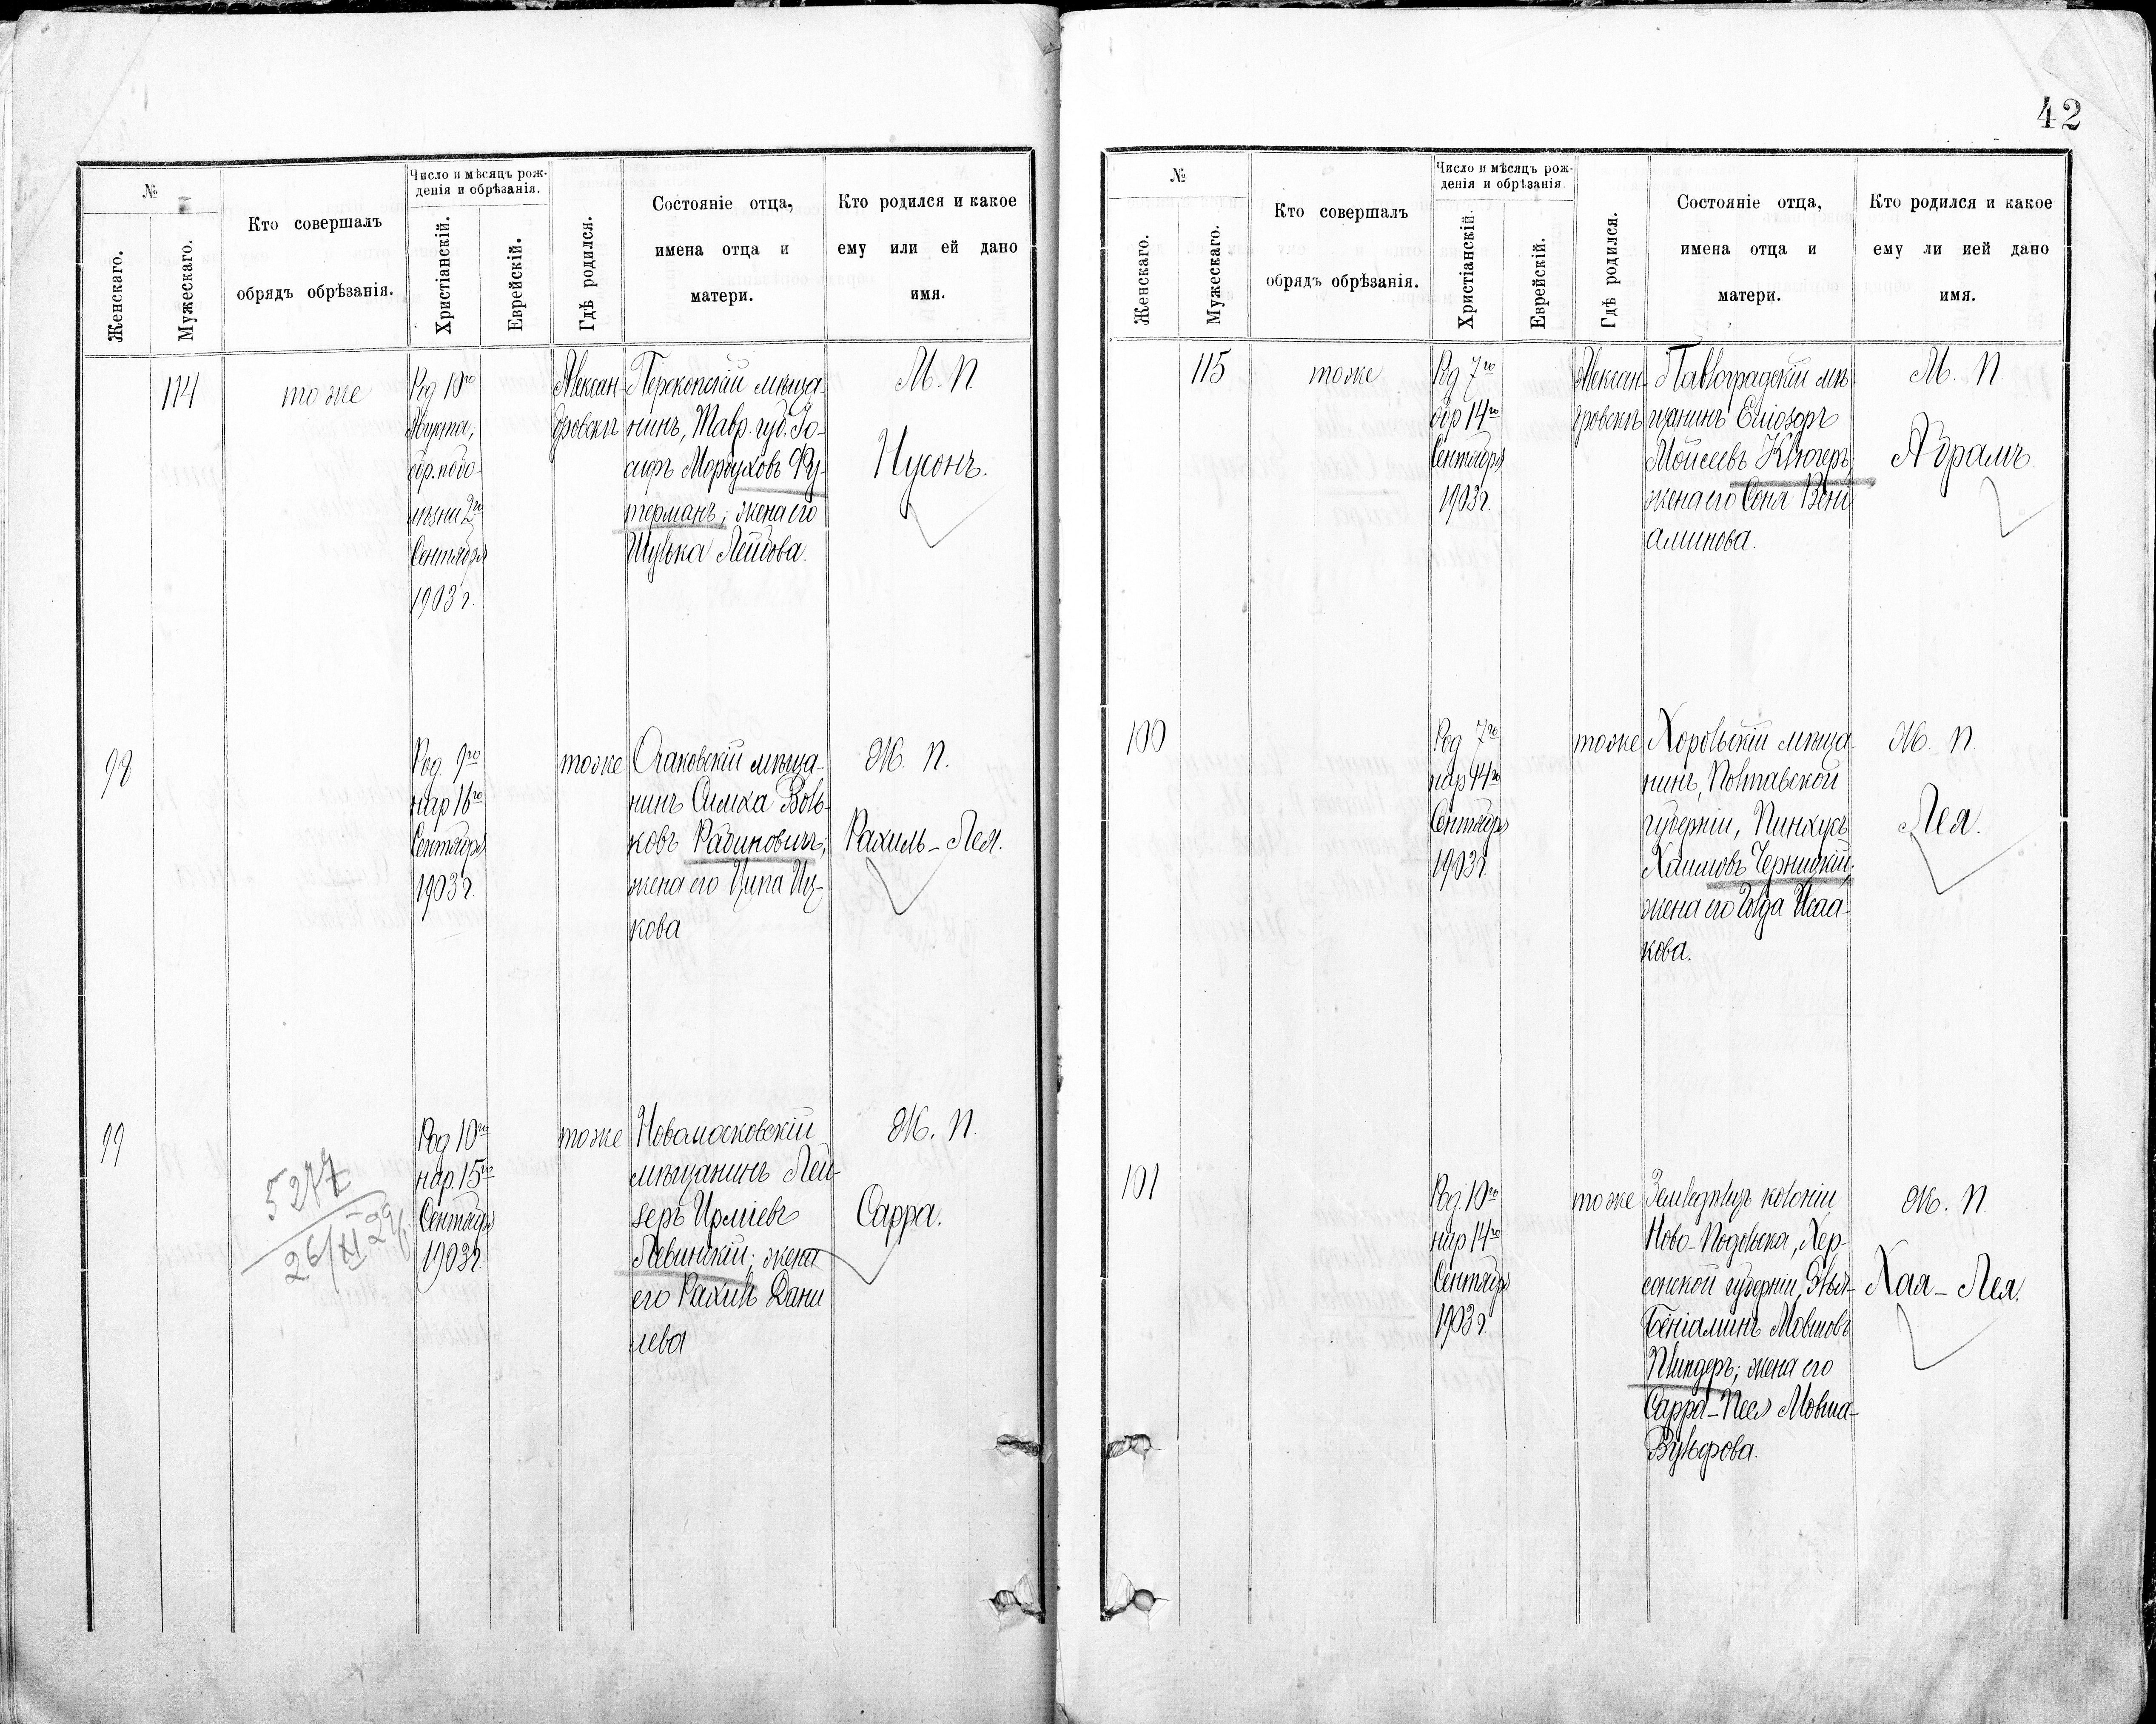 №
Женскаго.
Мужескаго.
Кто совершалъ
обрядъ обрѣзанія.
Число и мѣсяцъ рож-
денія и обрѣзанія.
Христіанскій.
Еврейскій.
Гдѣ родился.
Состояніе отца,
имена отца и
матери.
Кто родился и какое
ему или ей дано
имя.
114
тоже
Род 10го
Августа,
обр. по бо-
лѣзни 2го
Сентября
1903 г.
Алексан-
дровскъ
Перекопскій мѣща-
нинъ, Тавр. губ. Іо-
сифъ Мордуховъ Фу-
терманъ; жена его
Шулька Лейбова.
М. П
Нусонъ.
98
Род. 9го
нар 16го
Сентября
1903 г.
тоже
Очаковскій мѣща-
нинъ Симха Воль-
ковъ Рабиновичъ;
жена его Ципа Иц-
кова
Ж. П.
Рахиль-Лея.
99
5277
26/XI 29
Род 10го
нар. 15го
Сентября
1903 г.
тоже
Новомосковскій
мѣщанинъ Лей-
зеръ
Левинскій; жена
его Рахиль Дани
лева
Ж. П.
Сарра.
42
№
Женскаго.
Мужескаго.
Кто совершалъ
обрядъ обрѣзанія.
Число и мѣсяцъ рож-
денія и обрѣзанія.
Христіанскій.
Еврейскій.
Гдѣ родился.
Состояніе отца,
имена отца и
матери.
Кто родился и какое
ему ли ией дано
имя.
115
тоже
Род 7го
обр 14го
Сентября
1903 г.
Алексан-
дровскъ
Павлоградскій мѣ-
щанинъ Еліозоръ
Мойсеевъ Клюгеръ;
жена его Соня Вені
аминова.
М. П.
Абрамъ.
100
Род 7го
нар 14го
Сентября
1903 г.
тоже
Хорольскій мѣща-
нинъ, Полтавской
губерніи, Пинхусъ
Хаимовъ Черницкій;
жена его Голда Исаа-
кова.
Ж. П.
Лея.
101
Род. 10го
нар 14го
Сентября
1903 г.
тоже
Земледѣлецъ колоніи
Ново-Подольска, Хер-
сонской губерніи,
Беніаминъ Мовшовъ
Плиндеръ; жена его
Сарра-Песя Мовша-
Вульфова.
Ж. П.
Хая-Лея.